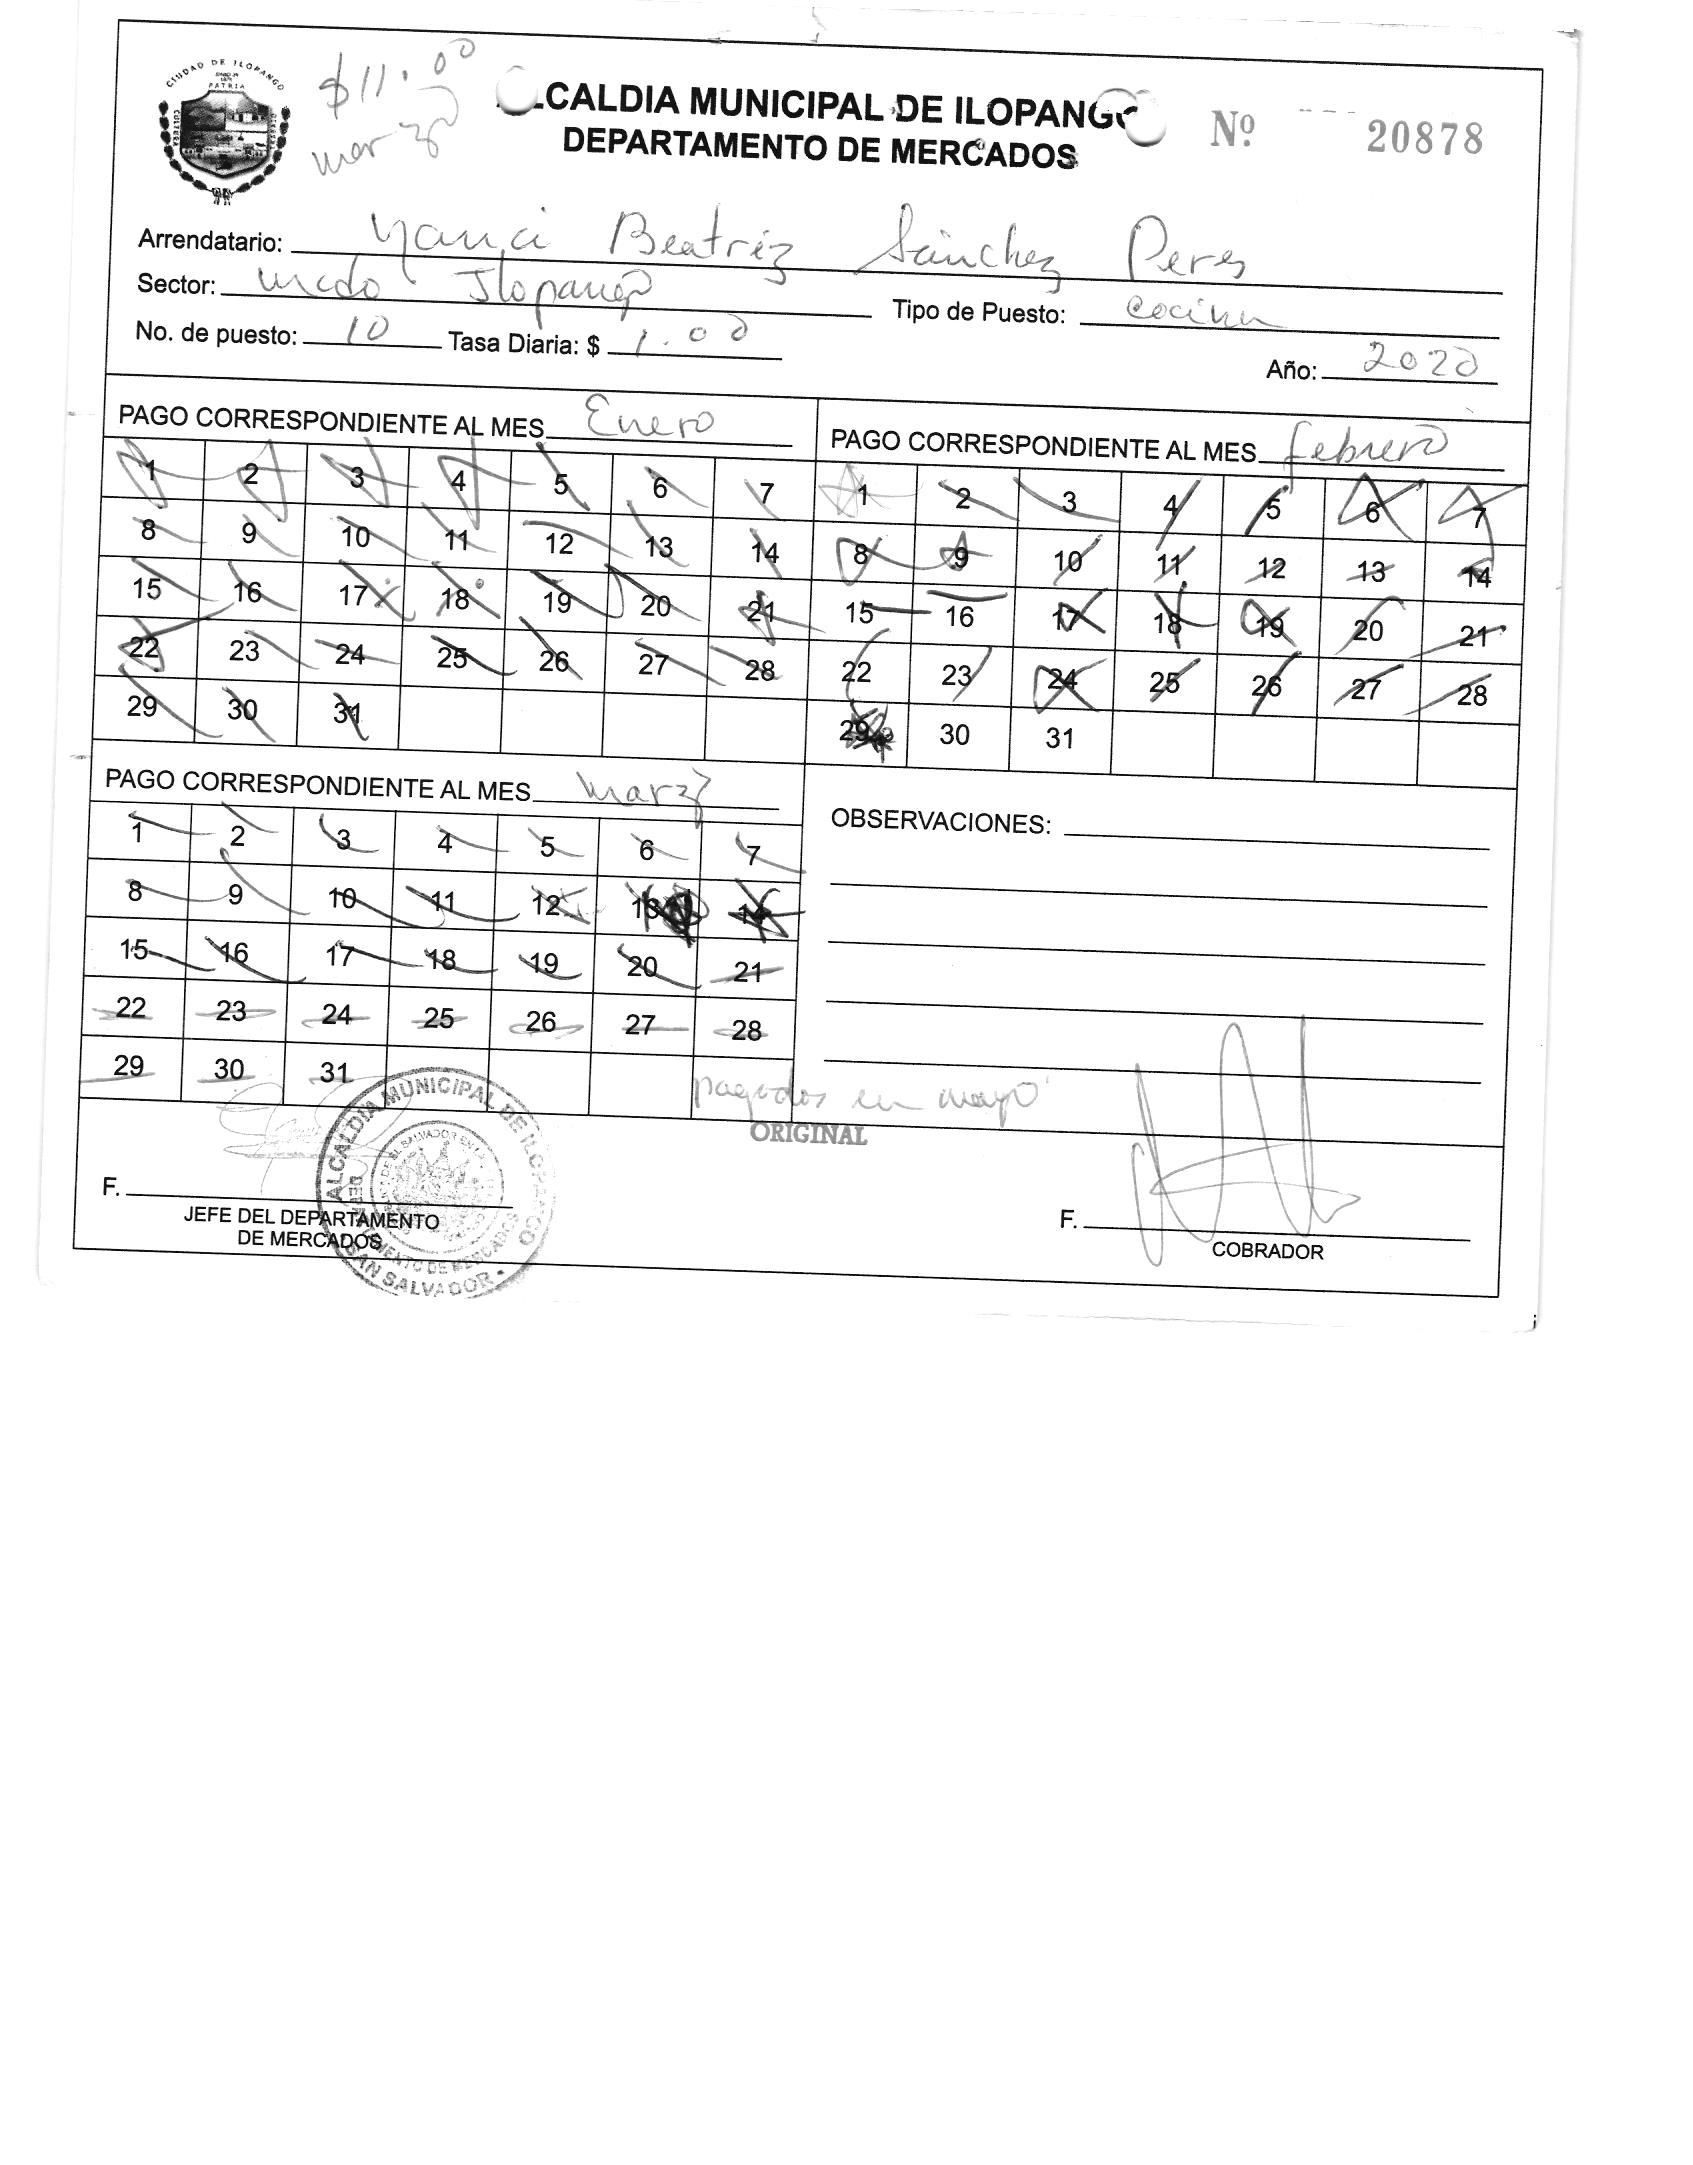 $11.00
marzo
CIUDAD DE ILOPANGO
PATRIA
CULTURA
ALCALDIA MUNICIPAL DE ILOPANGO
DEPARTAMENTO DE MERCADOS
Nº 20878
Arrendatario: Yanci Beatriz Sánchez Peres
Sector: mcdo Ilopango Tipo de Puesto: cocina
No. de puesto: 10 Tasa Diaria: $ 1.00 Año: 2020
PAGO CORRESPONDIENTE AL MES Enero
1 2 3 4 5 6 7
8 9 10 11 12 13 14
15 16 17 18 19 20 21
22 23 24 25 26 27 28
29 30 31
PAGO CORRESPONDIENTE AL MES febrero
1 2 3 4 5 6 7
8 9 10 11 12 13 14
15 16 17 18 19 20 21
22 23 24 25 26 27 28
29 30 31
PAGO CORRESPONDIENTE AL MES marzo
1 2 3 4 5 6 7
8 9 10 11 12 13 14
15 16 17 18 19 20 21
22 23 24 25 26 27 28
29 30 31
OBSERVACIONES:
pagados en mayo
ORIGINAL
ALCALDIA MUNICIPAL DE ILOPANGO
DEPARTAMENTO DE MERCADOS
SAN SALVADOR
F.
JEFE DEL DEPARTAMENTO
DE MERCADOS
F.
COBRADOR